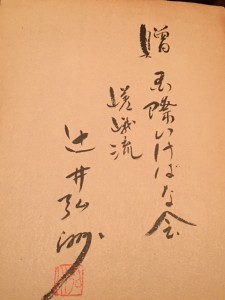 贈 国際いけばな会
嵯峨流
辻井弘洲